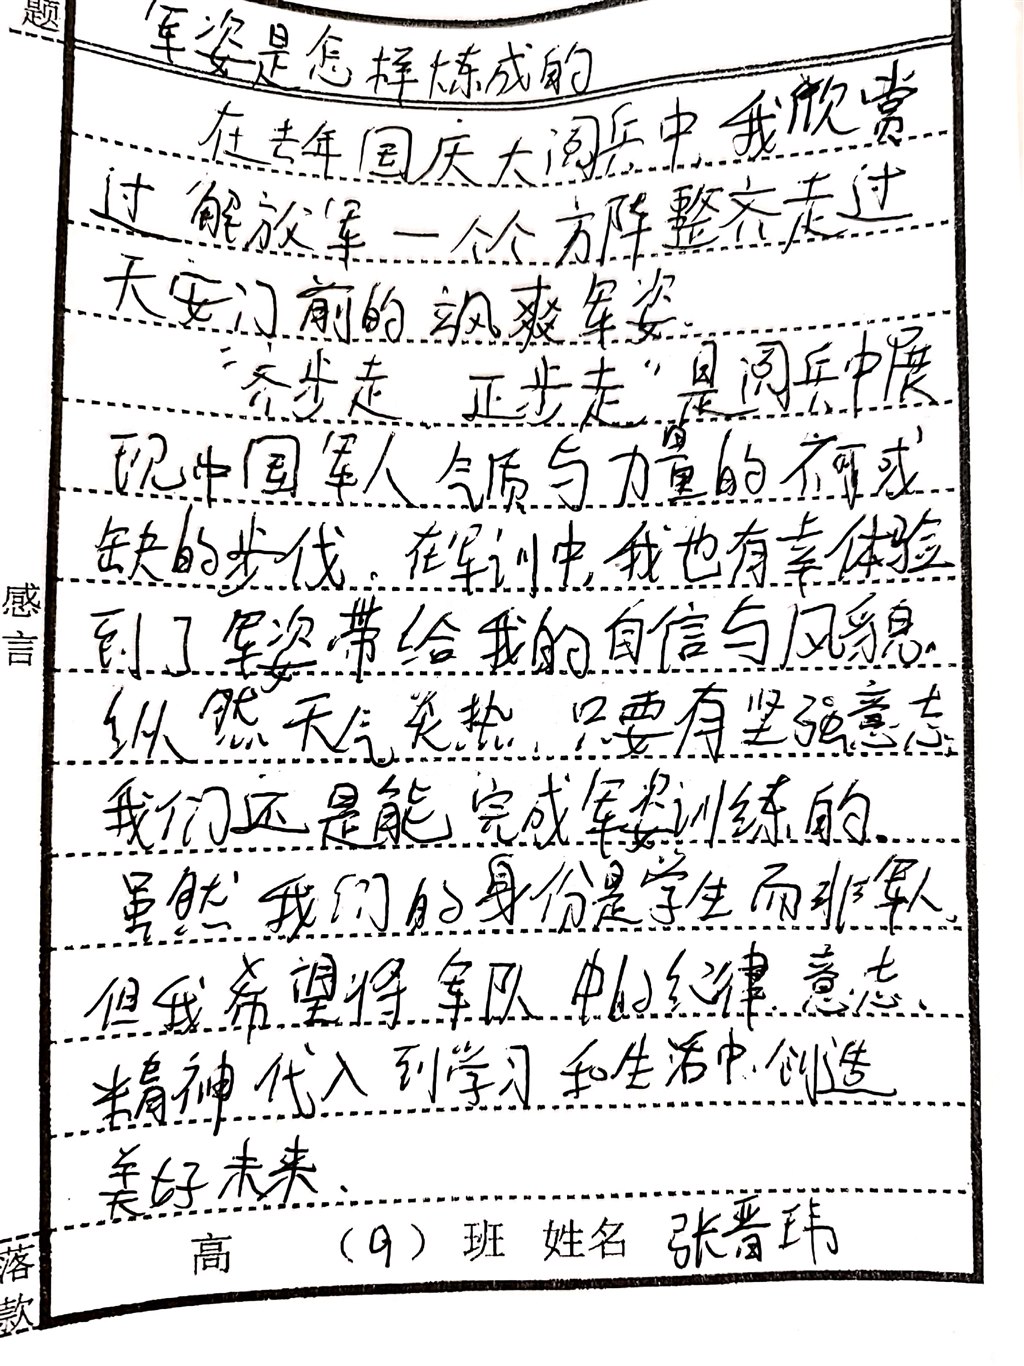 题
军姿是怎样炼成的
在去年国庆大阅兵中,我欣赏
过解放军一个个方阵整齐走过
天安门前的飒爽军姿.
“齐步走 正步走”是阅兵中展
现中国军人气质与力量的不可或
缺的步伐.在军训中,我也有幸体验
到了军姿带给我的自信与风貌.
纵然天气炎热,只要有坚强意志,
我们还是能完成军姿训练的.
虽然我们的身份是学生而非军人,
但我希望将军队中的纪律、意志、
精神代入到学习和生活中,创造
美好未来.
感言
落款
高 (9)班 姓名 张晋玮